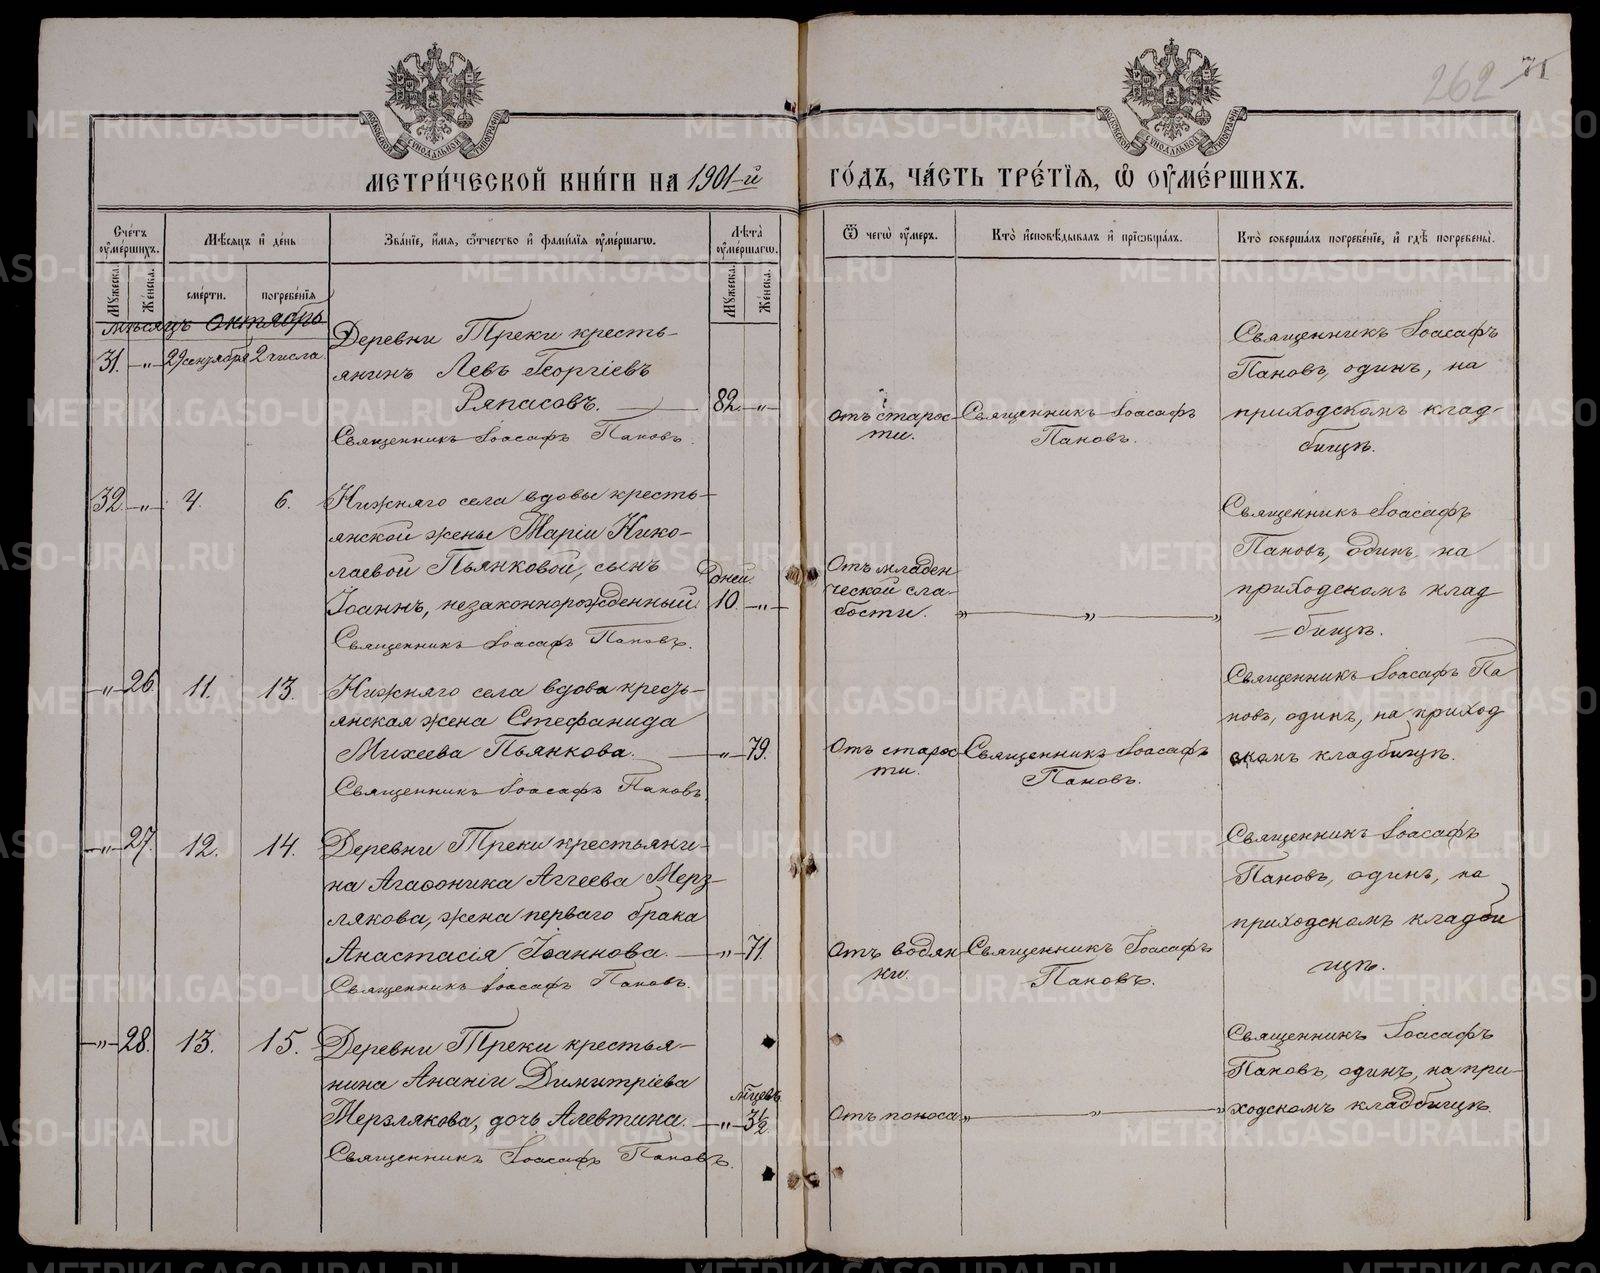 262 71
МЕТРИ́ЧЕСКОЙ КНИ́ГИ НА 1901-й
ГО́ДЪ, ЧА́СТЬ ТРЕ́ТІѦ, Ѡ ОУМЕ́РШИХЪ.
Сче́тъ оумершихъ.
Мѣсяцъ и день
Зва́ніе, имя, отчество и фамилія оумершагѡ.
Лѣта оумершагѡ.
Ѿ чегѡ оумеръ.
Кто исповѣдывалъ и пріѡбщалъ.
Кто совершалъ погребеніе, и гдѣ погребены.
Мужеска.
Женска.
смерти.
погребенія
Мужеска.
Женска.
мѣсяцъ октябрь
31. —„— 29 сентября 2 числа
Деревни Треки кресть-
янинъ Левъ Георгіевъ
Ряпасовъ. 82. —„—
Священникъ Іоасафъ Пановъ.
Отъ старос-
ти.
Священникъ Іоасафъ
Пановъ.
Священникъ Іоасафъ
Пановъ, одинъ, на
приходскомъ клад-
бищѣ.
32. —„— 4. 6.
Нижняго села вдовы кресть-
янской жены Маріи Нико-
лаевой Пьянковой, сынъ
Іоаннъ, незаконнорожденный.
дней.
10. —„—
Священникъ Іоасафъ Пановъ.
Отъ младен
ческой сла-
бости.
„ — „ — „
Священникъ Іоасафъ
Пановъ, одинъ, на
приходскомъ клад
=бищѣ.
—„— 26. 11. 13.
Нижняго села вдова кресть-
янская жена Стефанида
Михеева Пьянкова. —„— 79.
Священникъ Іоасафъ Пановъ.
Отъ старос-
ти.
Священникъ Іоасафъ
Пановъ.
Священникъ Іоасафъ Па
новъ, одинъ, на приход
скомъ кладбищѣ.
—„— 27. 12. 14.
Деревни Треки крестьяни-
на Агафоника Аггеева Мерз-
лякова, жена перваго брака
Анастасія Іоаннова. —„— 71.
Священникъ Іоасафъ Пановъ.
Отъ водян
ки.
Священникъ Іоасафъ
Пановъ.
Священникъ Іоасафъ
Пановъ, одинъ, на
приходскомъ кладби
щѣ.
—„— 28. 13. 15.
Деревни Треки крестья-
нина Ананіи Димитріева
Мерзлякова, дочь Алевтина.
м͠цевъ
—„— 3½
Священникъ Іоасафъ Пановъ.
Отъ поноса „ — „ — „
Священникъ Іоасафъ
Пановъ, одинъ, на при-
ходскомъ кладбищѣ.
METRIKI.GASO-URAL.RU